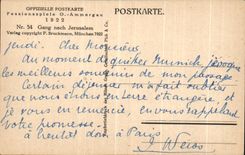 OFFIZIELLE POSTKARTE
Passionsspiele O.-Ammergau
1922
Nr. 54 Gang nach Jerusalem
Verlag copyright F. Bruckmann, München 1922
POSTKARTE.
Jeudi. Cher Monsieur
Au moment de quitter Munich j'évoque
les meilleurs souvenirs de mon passage
Certain déjeuner m'a fait oublier
que nous étions en terre étrangère, et
je vous en remercie, en vous rappelant
votre promesse.
à bientôt donc à Paris
J. Weiss